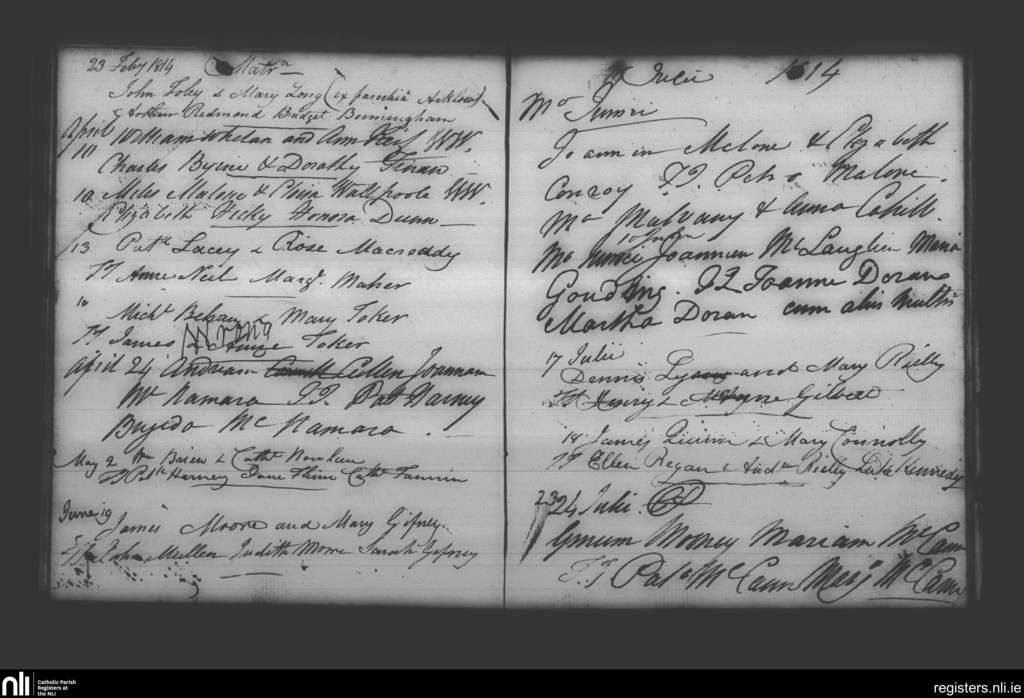 23 Feby 1814 Matra
John Foley & Mary Long ex parochia Arklow
& Arthur Redmond Bridget Birmingham
April William Whelan and Ann WW.
10 Charles Byrne & Dorathy
10 Miles Malone & Walpoole WW.
Elizabeth Honora Dunn
13 Patk Lacey & Rose Macreddy
TT Anne Neil Margt Maher
10
Michl Behan & Mary Toker
TT James & Toker
Wrong
April 24 Andream Cullen Joannam
Mc Namara TT. Pat Harney
Brigida Mc Namara.
May 2 Wm Brien & Cathe
TT Patk Harney Jane Flinn Cathe Fannin
June 19
James Moore and Mary Gifney.
TT John Mullen Judith Mome Sarah Gifney
Julii 1814
Mo Junxi
Joannin Melone & Elizabeth
Conroy TT. Petro Malone.
Mo Mulvany & Anna Cahill.
10
Mo Joannem McLauglin Maria
Goulding. TT Joanne Doran
Martha Doran cum aliis multis
17 Julii
Dennis and Mary Rielly
TT Henry & Gilbert
18 James Quinn & Mary Connolly
TT Ellen Regan & Andw Rielly Luke Kennedy
23 24 Julii.
Mooney Mariam McCann
TT Patk McCann Mary McCann
nli
Catholic Parish
Registers at
the NLI
registers.nli.ie